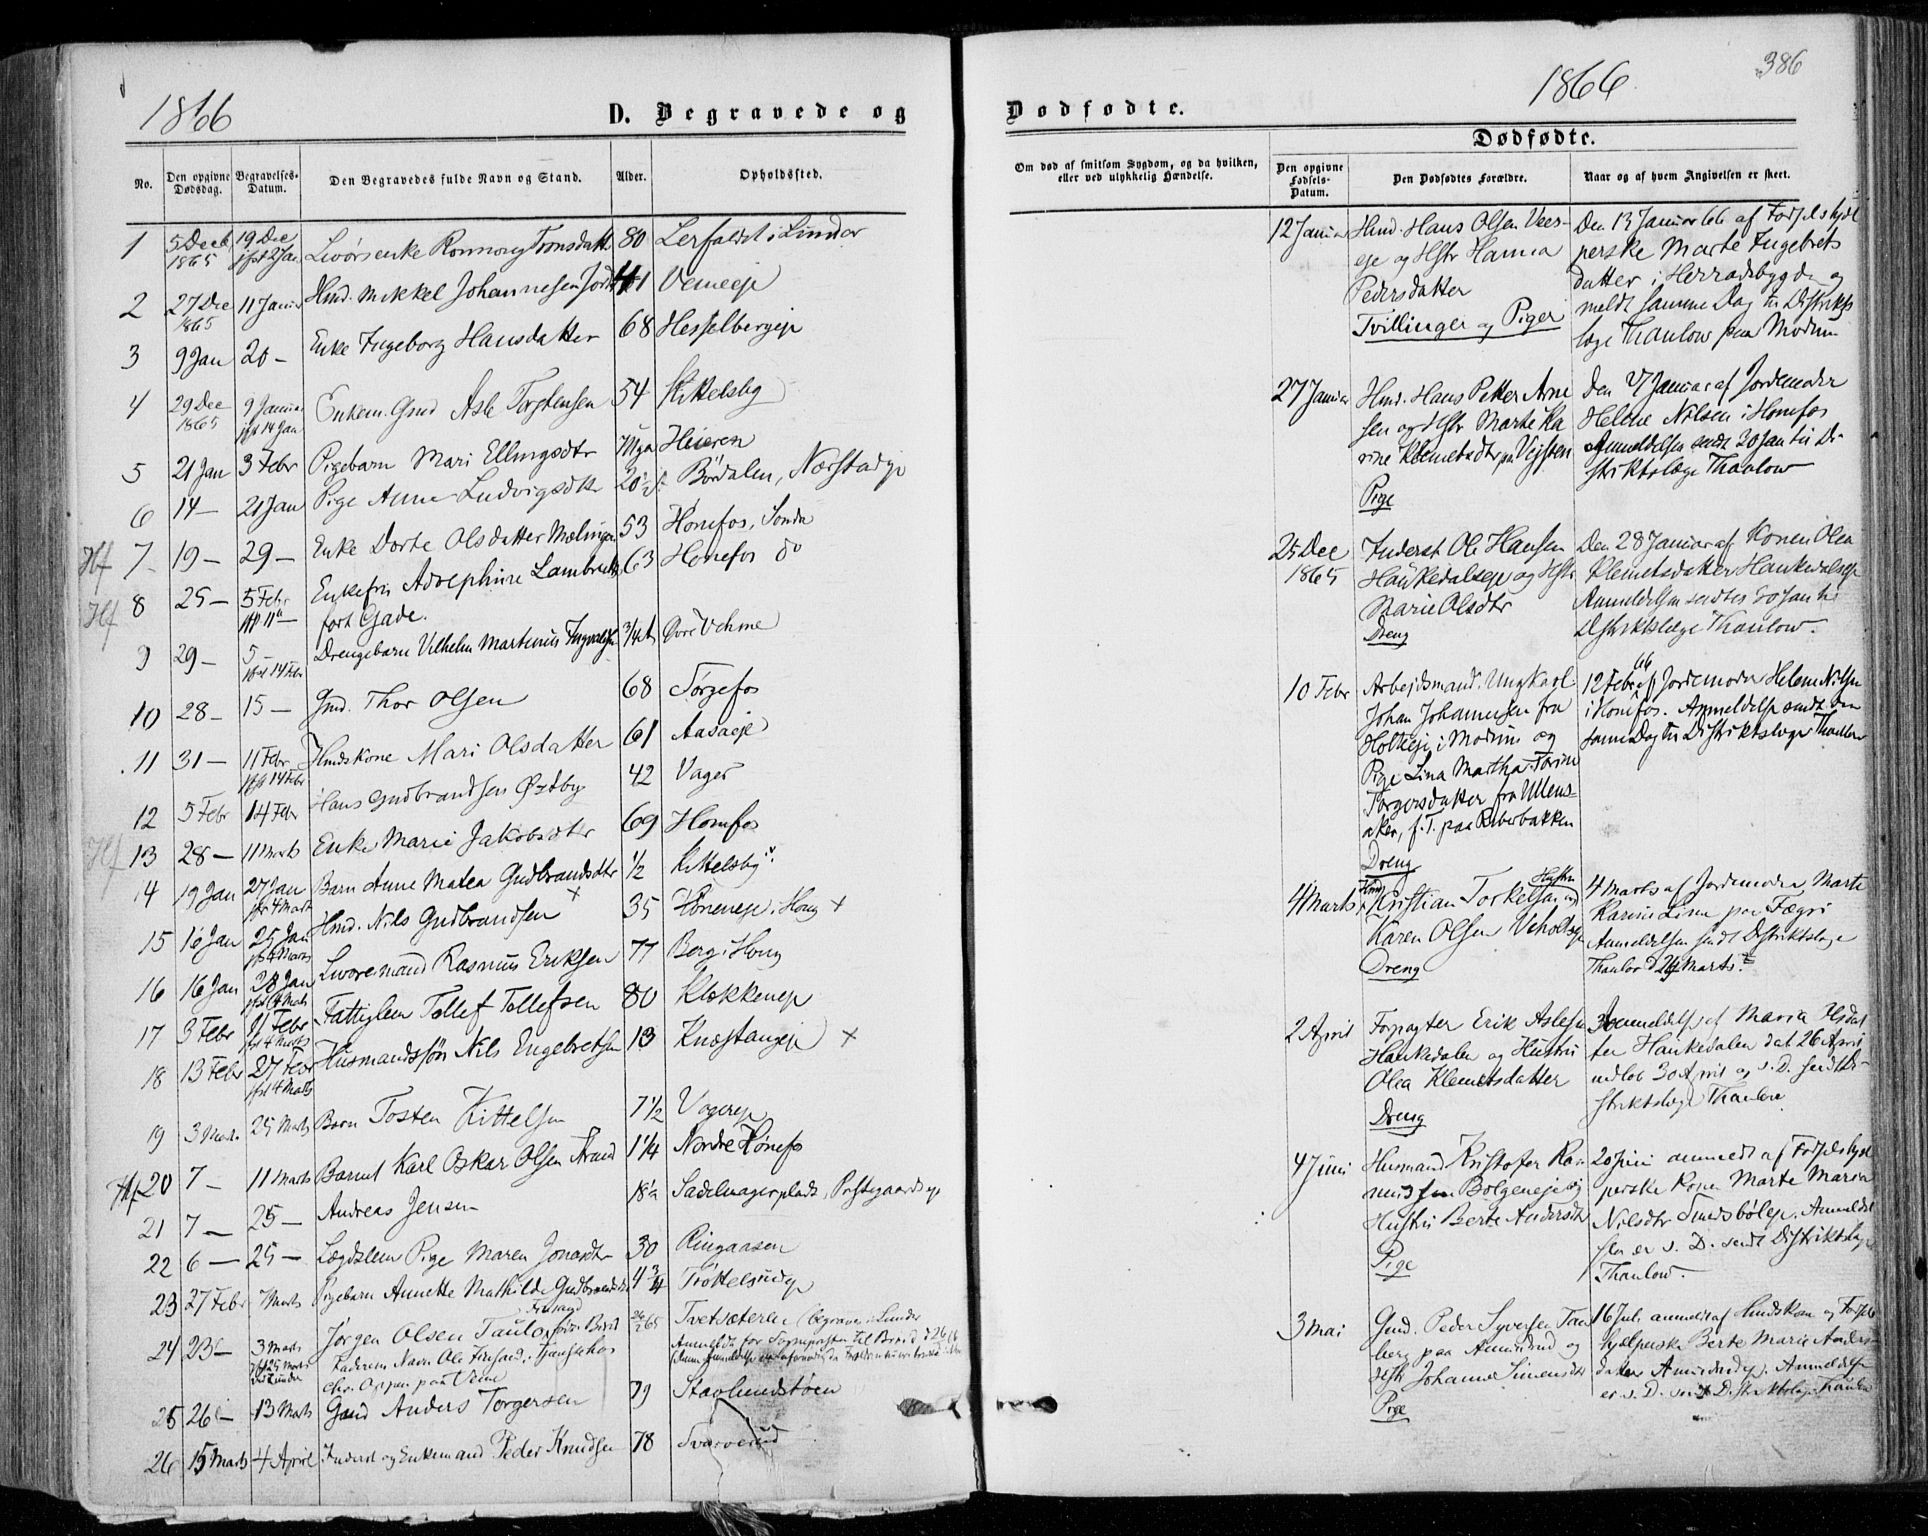 1866
D. Begravede og
No.
Den opgivne Dødsdag.
Begravelses-Datum.
Den Begravedes fulde Navn og Stand.
Alder.
Opholdssted.
1 5 Decb 1865 19 Dec jfst 2 Jan Tronsdatt 80 Lerfaldet i Lunder
2 27 Dec 1865 11 Januar Hmd. Mikkel Johannesen 41 Vemeeje
3 9 Jan 20 — Enke Ingeborg Hansdatter 68 Hesselbergeje
4 29 Dec 1865 9 Januar jfst 14 Jan Enkem. Gmd Asle Torstensen 54 Kittelsby
5 21 Jan 3 Febr Pigebarn Mari Ellingsdtr Heieren
6 14 — 21 Jan Pige Anne Ludvigsdtr Børdalen, Nærstadeje
Hf 7 19 — 29 — Enke Dorte Olsdatter 53 Hønefos, Søndre
Hf 8 25 — 5 Febr jfst 11te Enkefru Adolphine Lambrechts 63 Hønefos do
født Gade.
9 29 — 5 — jfst 14 Febr Drengebarn Vilhelm Martinius Vehme
10 28 — 15 — Gmd. Thor Olsen 68 Sørgefos
11 31 — 11 Febr jfst 14 Febr Hmdskone Mari Olsdatter 61 Aasaeje
12 5 Febr 14 Febr Hans Gudbrandsen Østby 42 Vager
Hf 13 28 — 11 Marts Enke Marie Jakobsdtr 69 Hønefos
14 19 Jan 27 Jan jfst 4 Marts Barn Anne Matea Gudbrandsdtr 1/2 Kittelsby
15 16 Jan 25 Jan jfst 4 Marts Hmd. Nils Gudbrandsen + 35 i Houg +
16 16 Jan 28 Jan jfst 4 Marts Rasmus Eriksen 77 Berg i Houg
17 3 Febr Febr jfst 4 Marts Fattiglem Tollef Tollefsen 80 Klækkeneje
18 13 Febr 27 Febr jfst 4 Marts Husmandssøn Nils Engebretsen 13 Knæstangeje +
19 3 Marts 25 Marts Barn Tosten Kittelsen 7 1/2 Vagereje
Hf 20 7 — 11 Marts Barnet Karl Oskar Olsen Strand 1 1/4 Nordre Hønefos
21 7 — 25 — Andreas Jensen Sadelmagerplads, Præstegaardseje
22 6 — 25 — Lægdslem Pige Maren Jonasdtr 30 Ringaasen
23 27 Febr Marts Pigebarn Annette Mathilde Gudbrandsdtr 4 3/4 Trøttelsrudeje
24 23 — 3 Marts jfst 25 Marts ved Lunder Jørgen Olsen Tvetsæteren (begraven i Lunder
Faderens Navn Ole
chr. Oppen paa Veme
25 26 — 13 Marts Gmd Anders Torgersen 79 Stavlundstøen
26 15 Marts 4 April Inderst og Enkemand Peder Knudsen 78 Svarverud
1866
386
Dødfødte.
Dødfødte.
Om død af smitsom Sygdom, og da hvilken, eller ved ulykkelig Hændelse.
Den opgivne Fødsels-Datum.
Den Dødfødtes Forældre.
Naar og af hvem Angivelsen er skeet.
12 Januar
Hmd. Hans Olsen Veers-
eje og Hstr Hanna
Pedersdatter
Tvillinger og Piger
Den 13 Januar 66 af Fødselshjæl
perske Marte Ingebrets
datter i Herradsbygde og
meldt samme Dag til Distrikts
læge Thaulow paa Modum
27 Januar
Hmd. Hans Petter Arne
sen og Hstr Marte Ka
rine Klemetsdtr paa
Pige
Den 27 Januar af Jordemoder
Helene Nilsen i Hønefos
Anmeldelsen sendt 20 Jan til Di-
striktslæge Thaulow
25 Dec 1865
Inderst Ole Hansen
Haukedalseje og Hstr
Marie Olsdtr
Dreng
Den 28 Januar af Konen Olea
Klemetsdatter Haukedalseje
Anmeldelsen sendtes 30 Jan til
Distriktslæge Thaulow.
10 Febr
Arbejdsmand, Ungkarl
Johan Johannesen fra
Holteeje i Modum og
Pige Lina Martha Torine
Torgersdatter fra Ullens-
aker, f. T. paa Ræberbakken
Dreng
12 Febr 66 af Jordemoder Helene Nilsen
i Hønefos. Anmeldelse sendt den
samme Dag til Distriktslæge Thaulow
4 Marts
Hmd Kristian Torkelsen og Hustru
Karen Olsen
Dreng
4 Marts af Jordemoder Marte
Karine Lien paa Fægri
Anmeldelsen sendt Distriktslæge
Thaulow d 24 Marts.
2 April
Forpagter Erik Aslesen
Haukedalen og Hustru
Olea Klemetsdatter
Dreng
Anmeldelse af Maria Olsdat
ter Haukedalen dat 26 April
indløb 30 April og s. D. sendt Di-
striktslæge Thaulow
4 Juni
Husmand Kristofer Ras
mussen Bolgeneje og
Hustru Berte Andersdtr
Pige
20 Juni anmeldt af Fødselshjæl
perske Kone Marte Maria
Nilsdtr Smedsbøleje. Anmeldel
sen er s. D. sendt Distriktslæge
Thaulow.
3 Mai
Gmd. Peder Syversen
berg paa Amundrud og
Hstr Johanne Simensdtr
Pige
16 Juli anmeldt af Hmdskone og Fødsels
hjælperske Berte Marie Anders-
datter Amundrudeje. Anmeldelse
er s. D. sendt Distriktslæge Thaulow